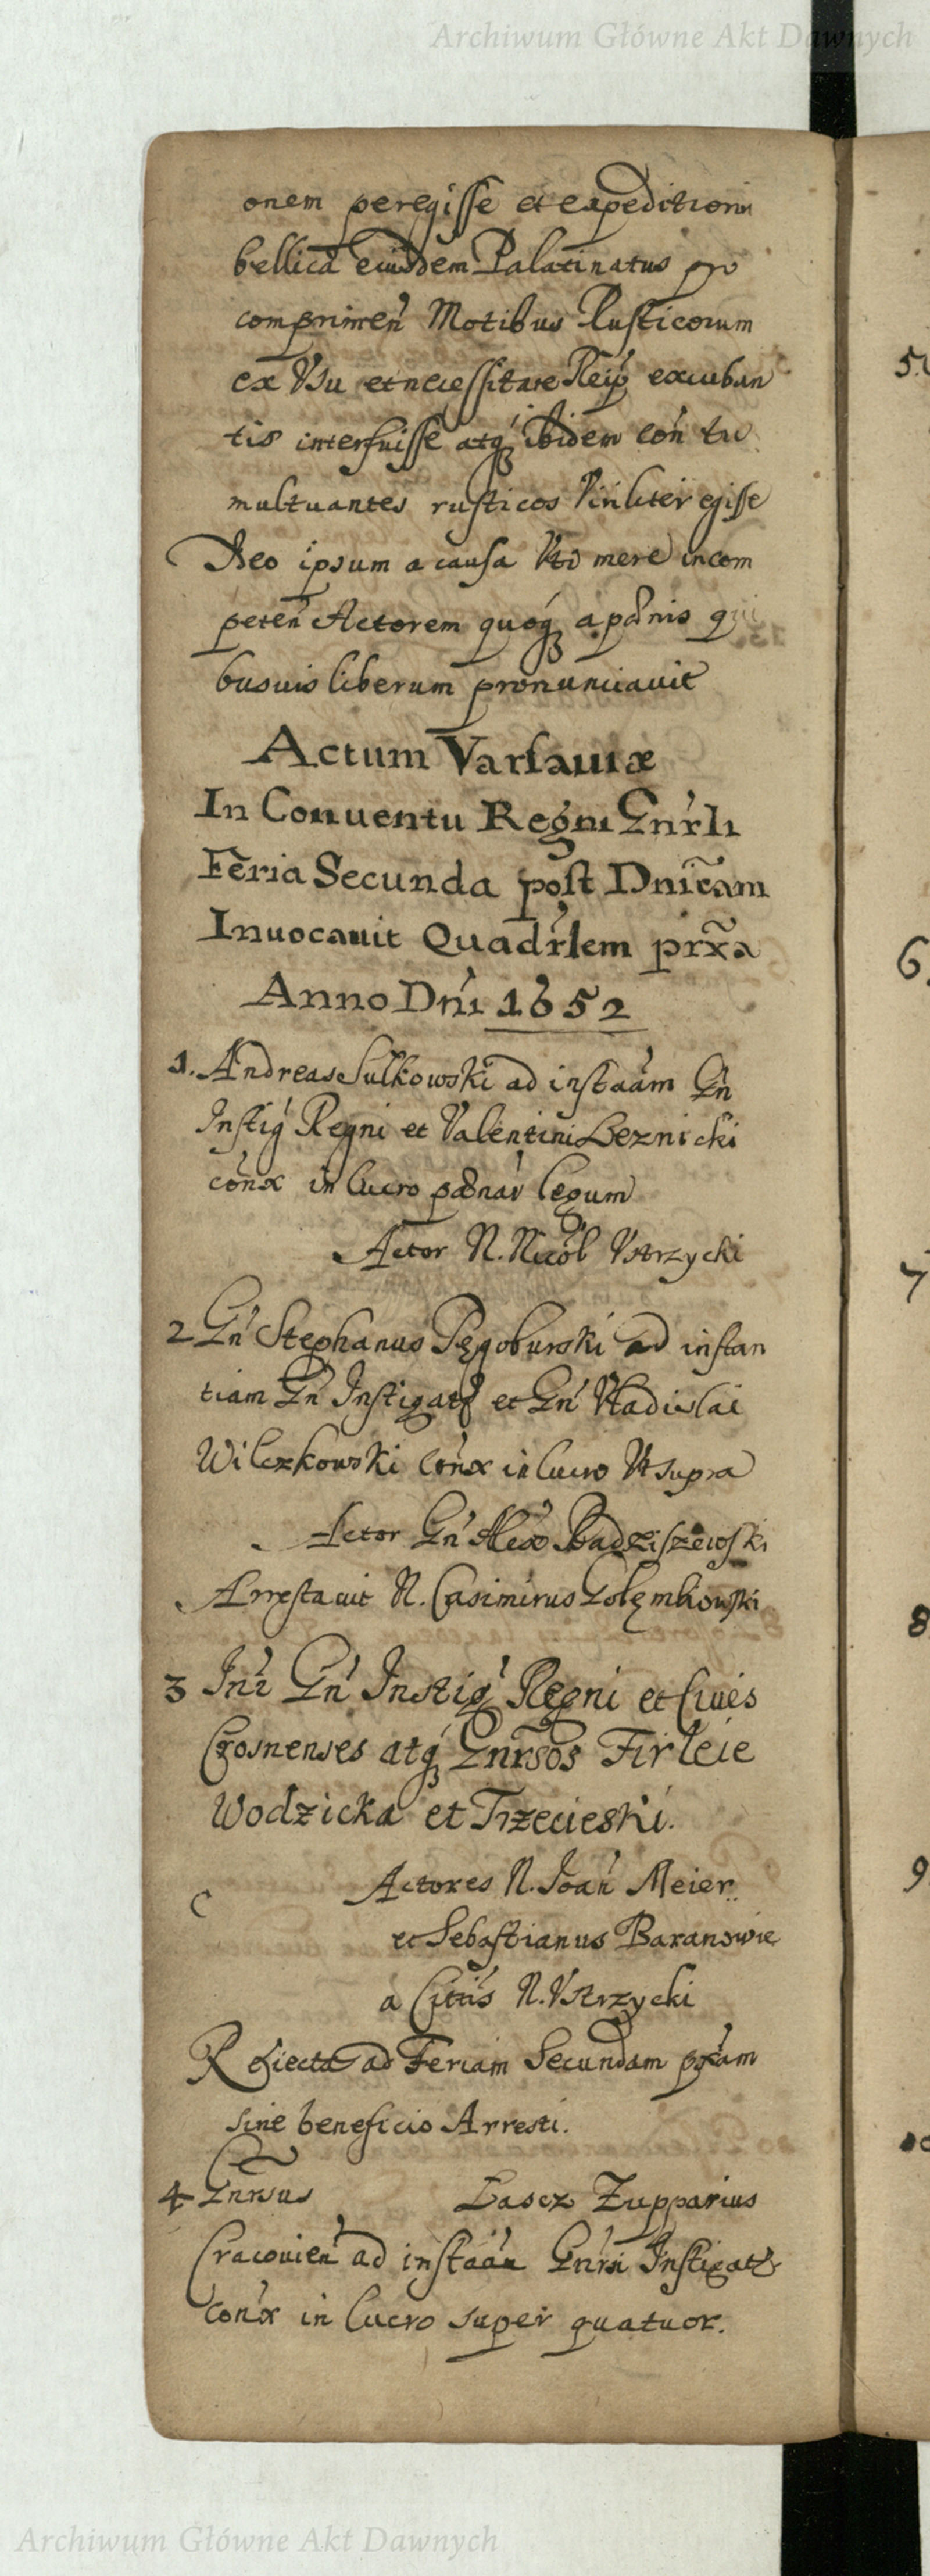 Archiwum Główne Akt Dawnych
onem peregisse et expeditioni
bellica eiusdem Palatinatus pro
comprimen̄ Motibus Rusticorum
ex Vsu et necessitate Reip̄ excuban
tis interfuisse atq́ꝫ ibidem con̄ tu
multuantes rusticos Viriliter egisse
Deo ipsum a causa Vti mere incom
peten̄ Actorem quoq́ꝫ a pœnis qui
busuis liberum pronunciauit
Actum Varsauiæ
In Conuentu Regni Gnr̄li
Feria Secunda post Dnīcam
Inuocauit Quadr̄lem prx̄a
Anno Dnī 1652
1. Andreas Sulkowski ad instāam Gn̄
Instiḡ Regni et Valentini Leznicki
con̄x in lucro pœnar̄ legum
Actor N. Nicol̄ Vstrzycki
2 Gn̄ Stephanus Pęgoburski ad instan
tiam Gn̄ Instigatꝭ et Gn̄ Vladislai
Wilczkowski con̄x in lucro Vt supra
Actor Gn̄ Alex̄ Radziszewski
Arrestauit N. Casimirus Gołęmbiowski
3 Int̄ Gn̄ Instiḡ Regni et Ciues
Crosnenses atq́ꝫ Gnrsos Firleie
Wodzicka et Trzecieski.
Actores N. Joan̄ Meier
C
et Sebastianus Baranowic
a Citīs N. Vstrzycki
Reiecta ad Feriam Secundam prx̄am
sine beneficio Arresti.
4 Gnrsus Lascz Zupparius
Cracouien̄ ad instāam Gnrsi Instigatꝭ
con̄x in lucro super quatuor.
5
6.
7
8
9
10
Archiwum Główne Akt Dawnych